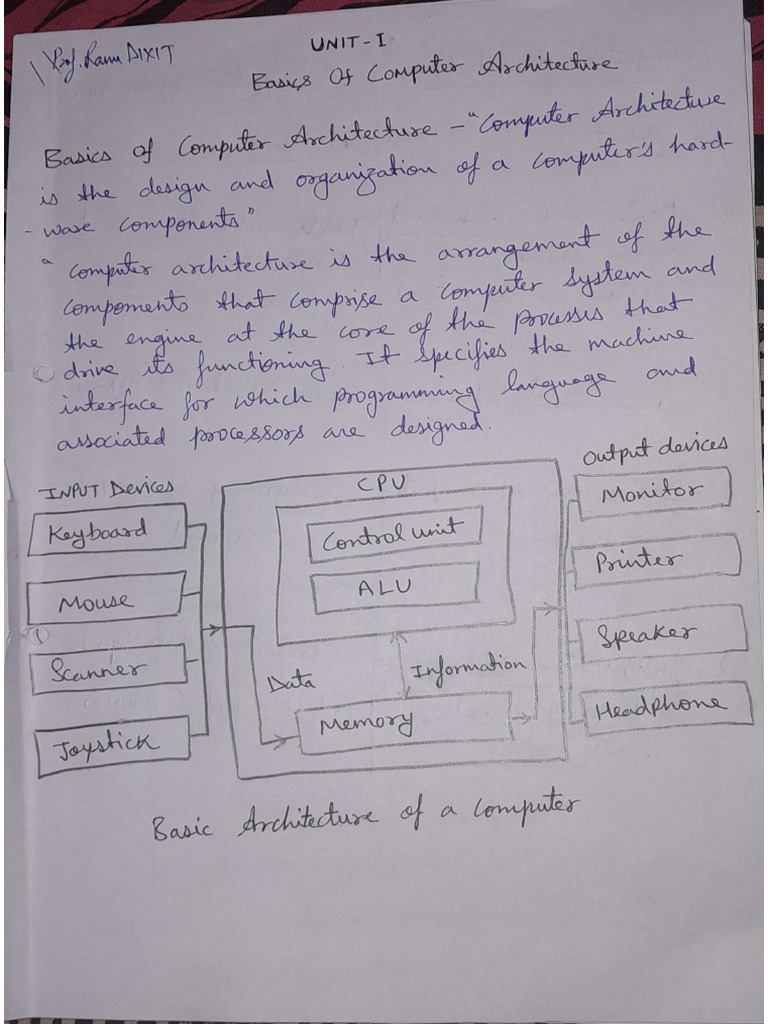 Prof. Ranu DIXIT
UNIT-I
Basics Of Computer Architecture
Basics of Computer Architecture - "Computer Architecture
is the design and organization of a computer's hard-
- ware components"
" Computer architecture is the arrangement of the
components that comprise a computer system and
the engine at the core of the processes that
drive its functioning. It specifies the machine
interface for which programming language and
associated processors are designed.
INPUT Devices
Keyboard
Mouse
Scanner
Joystick
CPU
Control unit
ALU
Data
Information
Memory
Output devices
Monitor
Printer
Speaker
Headphone
Basic Architecture of a computer